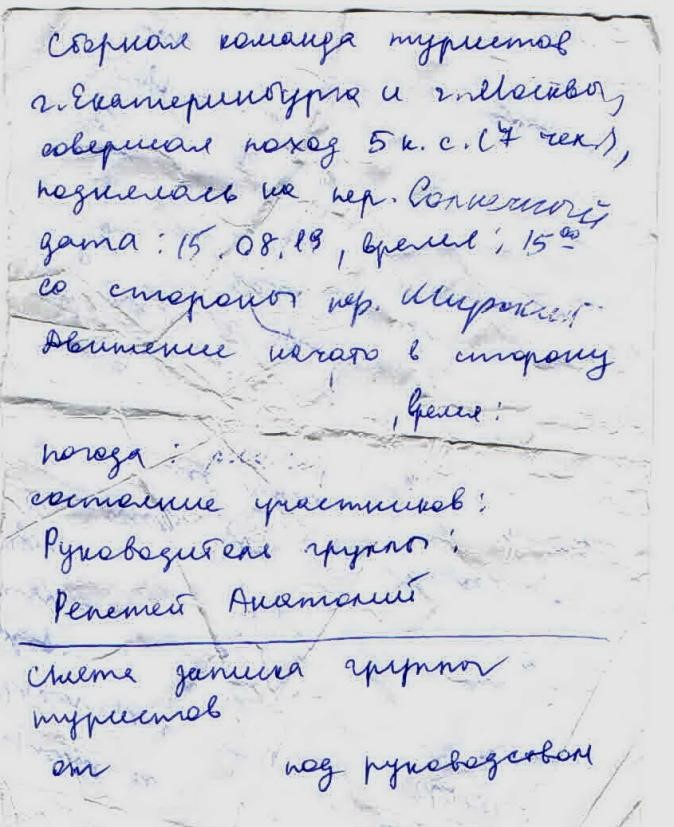 Сборная команда туристов
г. Екатеринбурга и г. Москвы,
совершая поход 5 к. с. (7 чел.),
поднялась на пер. Солнечный
дата: 15.08.19, время: 15⁰⁰
со стороны пер. Широкий
Движение начато в сторону
, время:
погода:
состояние участников:
Руководитель группы:
Репетей Анатолий
Снята записка группы
туристов
от под руководством